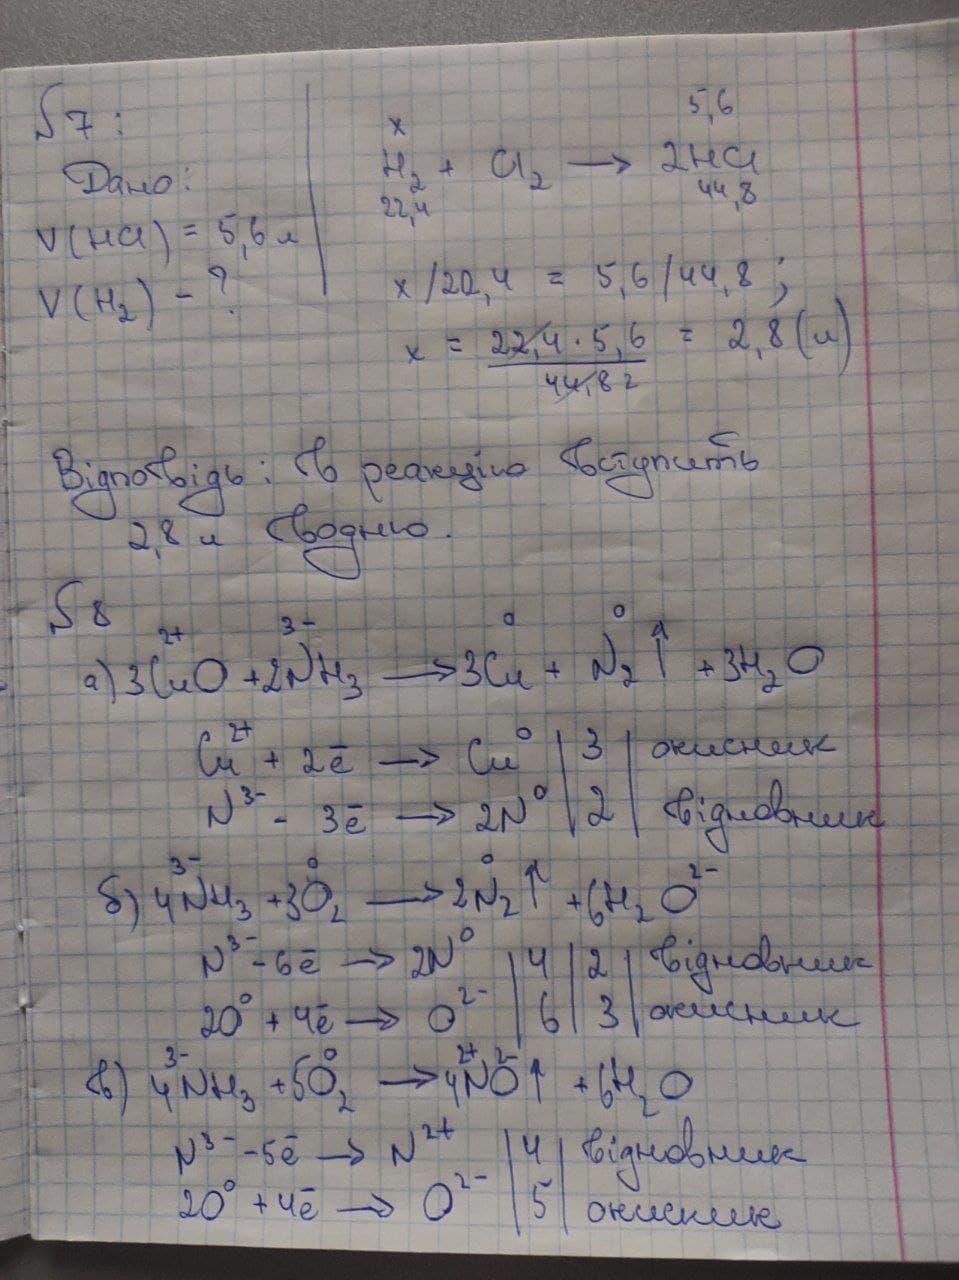 §7:
Дано:
V(HCl) = 5,6 л
V(H₂) - ?
x 5,6
H₂ + Cl₂ → 2HCl
22,4 44,8
x/22,4 = 5,6/44,8;
x = 22,4 · 5,6 / 44,8 2 = 2,8 (л)
Відповідь: в реакцію вступить
2,8 л водню.
§8
а) 3Cu²⁺O + 2N³⁻H₃ → 3Cu⁰ + N₂⁰↑ + 3H₂O
Cu²⁺ + 2ē → Cu⁰ | 3 | окисник
N³⁻ - 3ē → 2N⁰ | 2 | відновник
б) 4N³⁻H₃ + 3O₂⁰ → 2N₂⁰↑ + 6H₂O²⁻
N³⁻ - 6ē → 2N⁰ | 4 | 2 | відновник
2O⁰ + 4ē → O²⁻ | 6 | 3 | окисник
в) 4N³⁻H₃ + 5O₂⁰ → 4N²⁺O²⁻↑ + 6H₂O
N³⁻ - 5ē → N²⁺ | 4 | відновник
2O⁰ + 4ē → O²⁻ | 5 | окисник